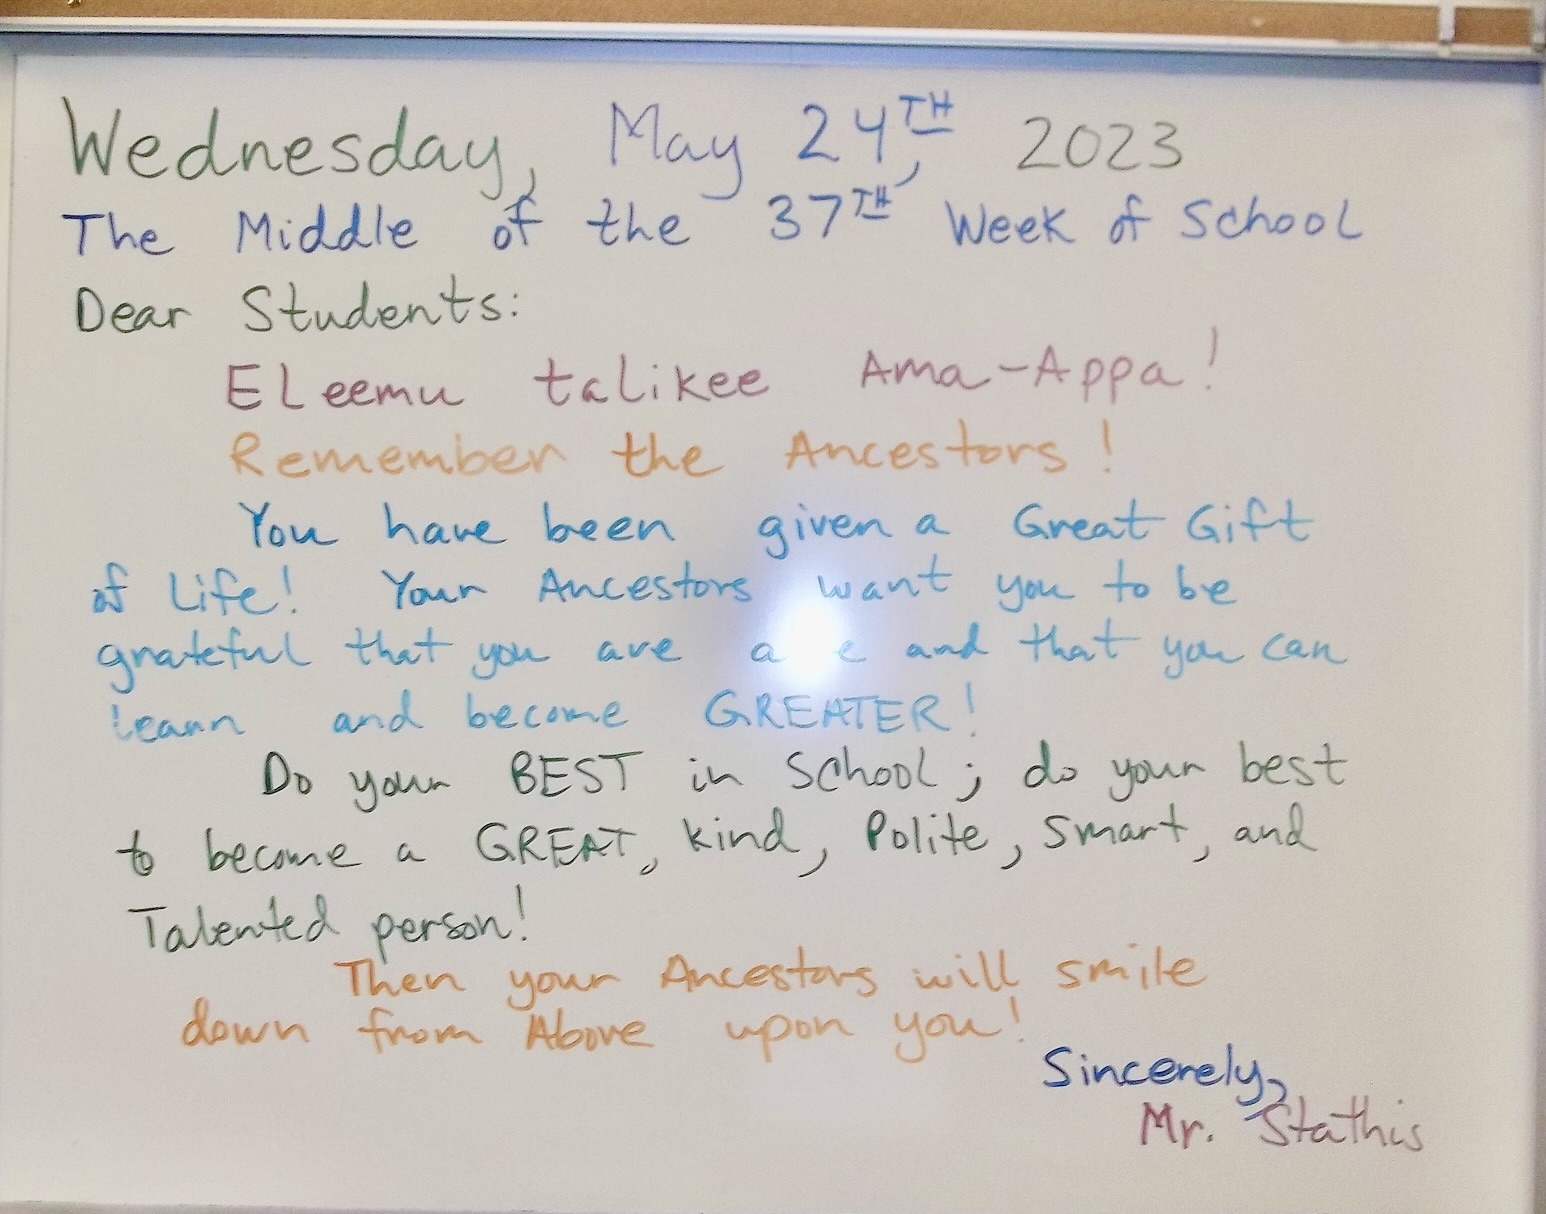 Wednesday, May 24TH, 2023
The Middle of the 37TH Week of School
Dear Students:
ELeemu talikee Ama-Appa!
Remember the Ancestors!
You have been given a Great Gift
of Life! Your Ancestors want you to be
grateful that you are and that you can
learn and become GREATER!
Do your BEST in School; do your best
to become a GREAT, kind, Polite, Smart, and
Talented person!
Then your Ancestors will smile
down from Above upon you!
Sincerely,
Mr. Stathis